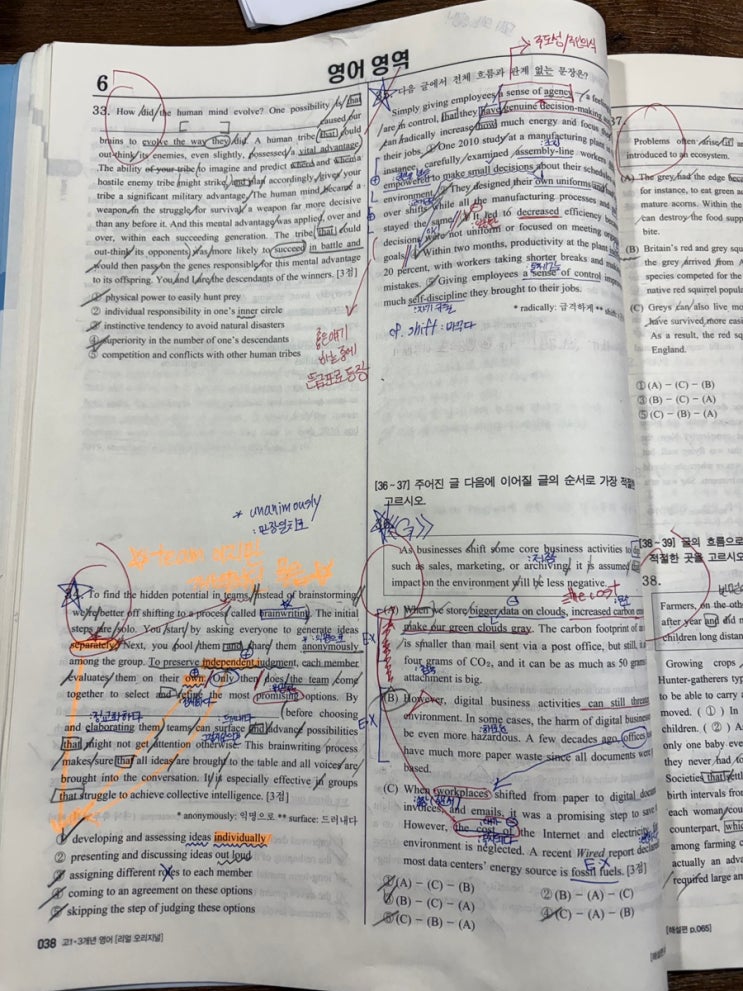 6
영어 영역
33. How did the human mind evolve? One possibility is that
caused our
brains to evolve the way they did. A human tribe that could
out-think its enemies, even slightly, possessed a vital advantage.
The ability of your tribe to imagine and predict where and when a
hostile enemy tribe might strike, and plan accordingly, gives your
tribe a significant military advantage. The human mind became a
weapon in the struggle for survival, a weapon far more decisive
than any before it. And this mental advantage was applied, over and
over, within each succeeding generation. The tribe that could
out-think its opponents was more likely to succeed in battle and
would then pass on the genes responsible for this mental advantage
to its offspring. You and I are the descendants of the winners. [3점]
① physical power to easily hunt prey
② individual responsibility in one's inner circle
③ instinctive tendency to avoid natural disasters
④ superiority in the number of one's descendants
⑤ competition and conflicts with other human tribes
* unanimously
: 만장일치로
34. To find the hidden potential in teams, instead of brainstorming,
we're better off shifting to a process called brainwriting. The initial
steps are solo. You start by asking everyone to generate ideas
separately. Next, you pool them and share them anonymously
among the group. To preserve independent judgment, each member
evaluates them on their own. Only then does the team come
together to select and refine the most promising options. By
(before choosing
and elaborating them, teams can surface and advance possibilities
that might not get attention otherwise. This brainwriting process
makes sure that all ideas are brought to the table and all voices are
brought into the conversation. It is especially effective in groups
that struggle to achieve collective intelligence. [3점]
* anonymously: 익명으로 ** surface: 드러내다
① developing and assessing ideas individually
② presenting and discussing ideas out loud
③ assigning different roles to each member
④ coming to an agreement on these options
⑤ skipping the step of judging these options
038 고1·3개년 영어 [리얼 오리지널]
다음 글에서 전체 흐름과 관계 없는 문장은?
Simply giving employees a sense of agency — a feeling
are in control, that they have genuine decision-making
can radically increase how much energy and focus
their jobs. ① One 2010 study at a manufacturing
instance, carefully examined assembly-line workers
empowered to make small decisions about their
environment. ② They designed their own uniforms and
over shifts while all the manufacturing processes and
stayed the same. ③ It led to decreased efficiency
decisions were not uniform or focused on meeting
goals. ④ Within two months, productivity at the plant
20 percent, with workers taking shorter breaks and
mistakes. ⑤ Giving employees a sense of control
much self-discipline they brought to their jobs.
* radically: 급격하게 **
cf. shift : 바꾸다
[36~37] 주어진 글 다음에 이어질 글의 순서로 가장 적절한
고르시오.
As businesses shift some core business activities to
such as sales, marketing, or archiving, it is assumed
impact on the environment will be less negative.
(A) When we store bigger data on clouds, increased carbon
make our green clouds gray. The carbon footprint of an
is smaller than mail sent via a post office, but still, it
four grams of CO₂, and it can be as much as 50 grams
attachment is big.
(B) However, digital business activities can still threaten
environment. In some cases, the harm of digital
be even more hazardous. A few decades ago, offices
have much more paper waste since all documents were
based.
(C) When workplaces shifted from paper to digital
invoices, and emails, it was a promising step to save
However, the cost of the Internet and electricity
environment is neglected. A recent Wired report declared
most data centers' energy source is fossil fuels. [3점]
① (A) - (C) - (B)
② (B) - (A) - (C)
③ (B) - (C) - (A)
④ (C) - (A) - (B)
⑤ (C) - (B) - (A)
37.
Problems often arise
introduced to an ecosystem.
(A) The grey had the edge
for instance, to eat green
mature acorns. Within the
can destroy the food
bite.
(B) Britain's red and grey
the grey arrived from
species competed for the
native red squirrel
(C) Greys can also live
have survived more
As a result, the red
England.
① (A) - (C) - (B)
③ (B) - (C) - (A)
⑤ (C) - (B) - (A)
[38~39] 글의 흐름으로
적절한 곳을 고르시오
38.
Farmers, on the
after year and did
children long
Growing crops
Hunter-gatherers
to be able to carry
moved. ( ① ) In
children. ( ② )
only one baby
they never had to
Societies that
birth intervals from
each woman
counterpart, which
among farming
actually an
required large
[해설편 p.065]